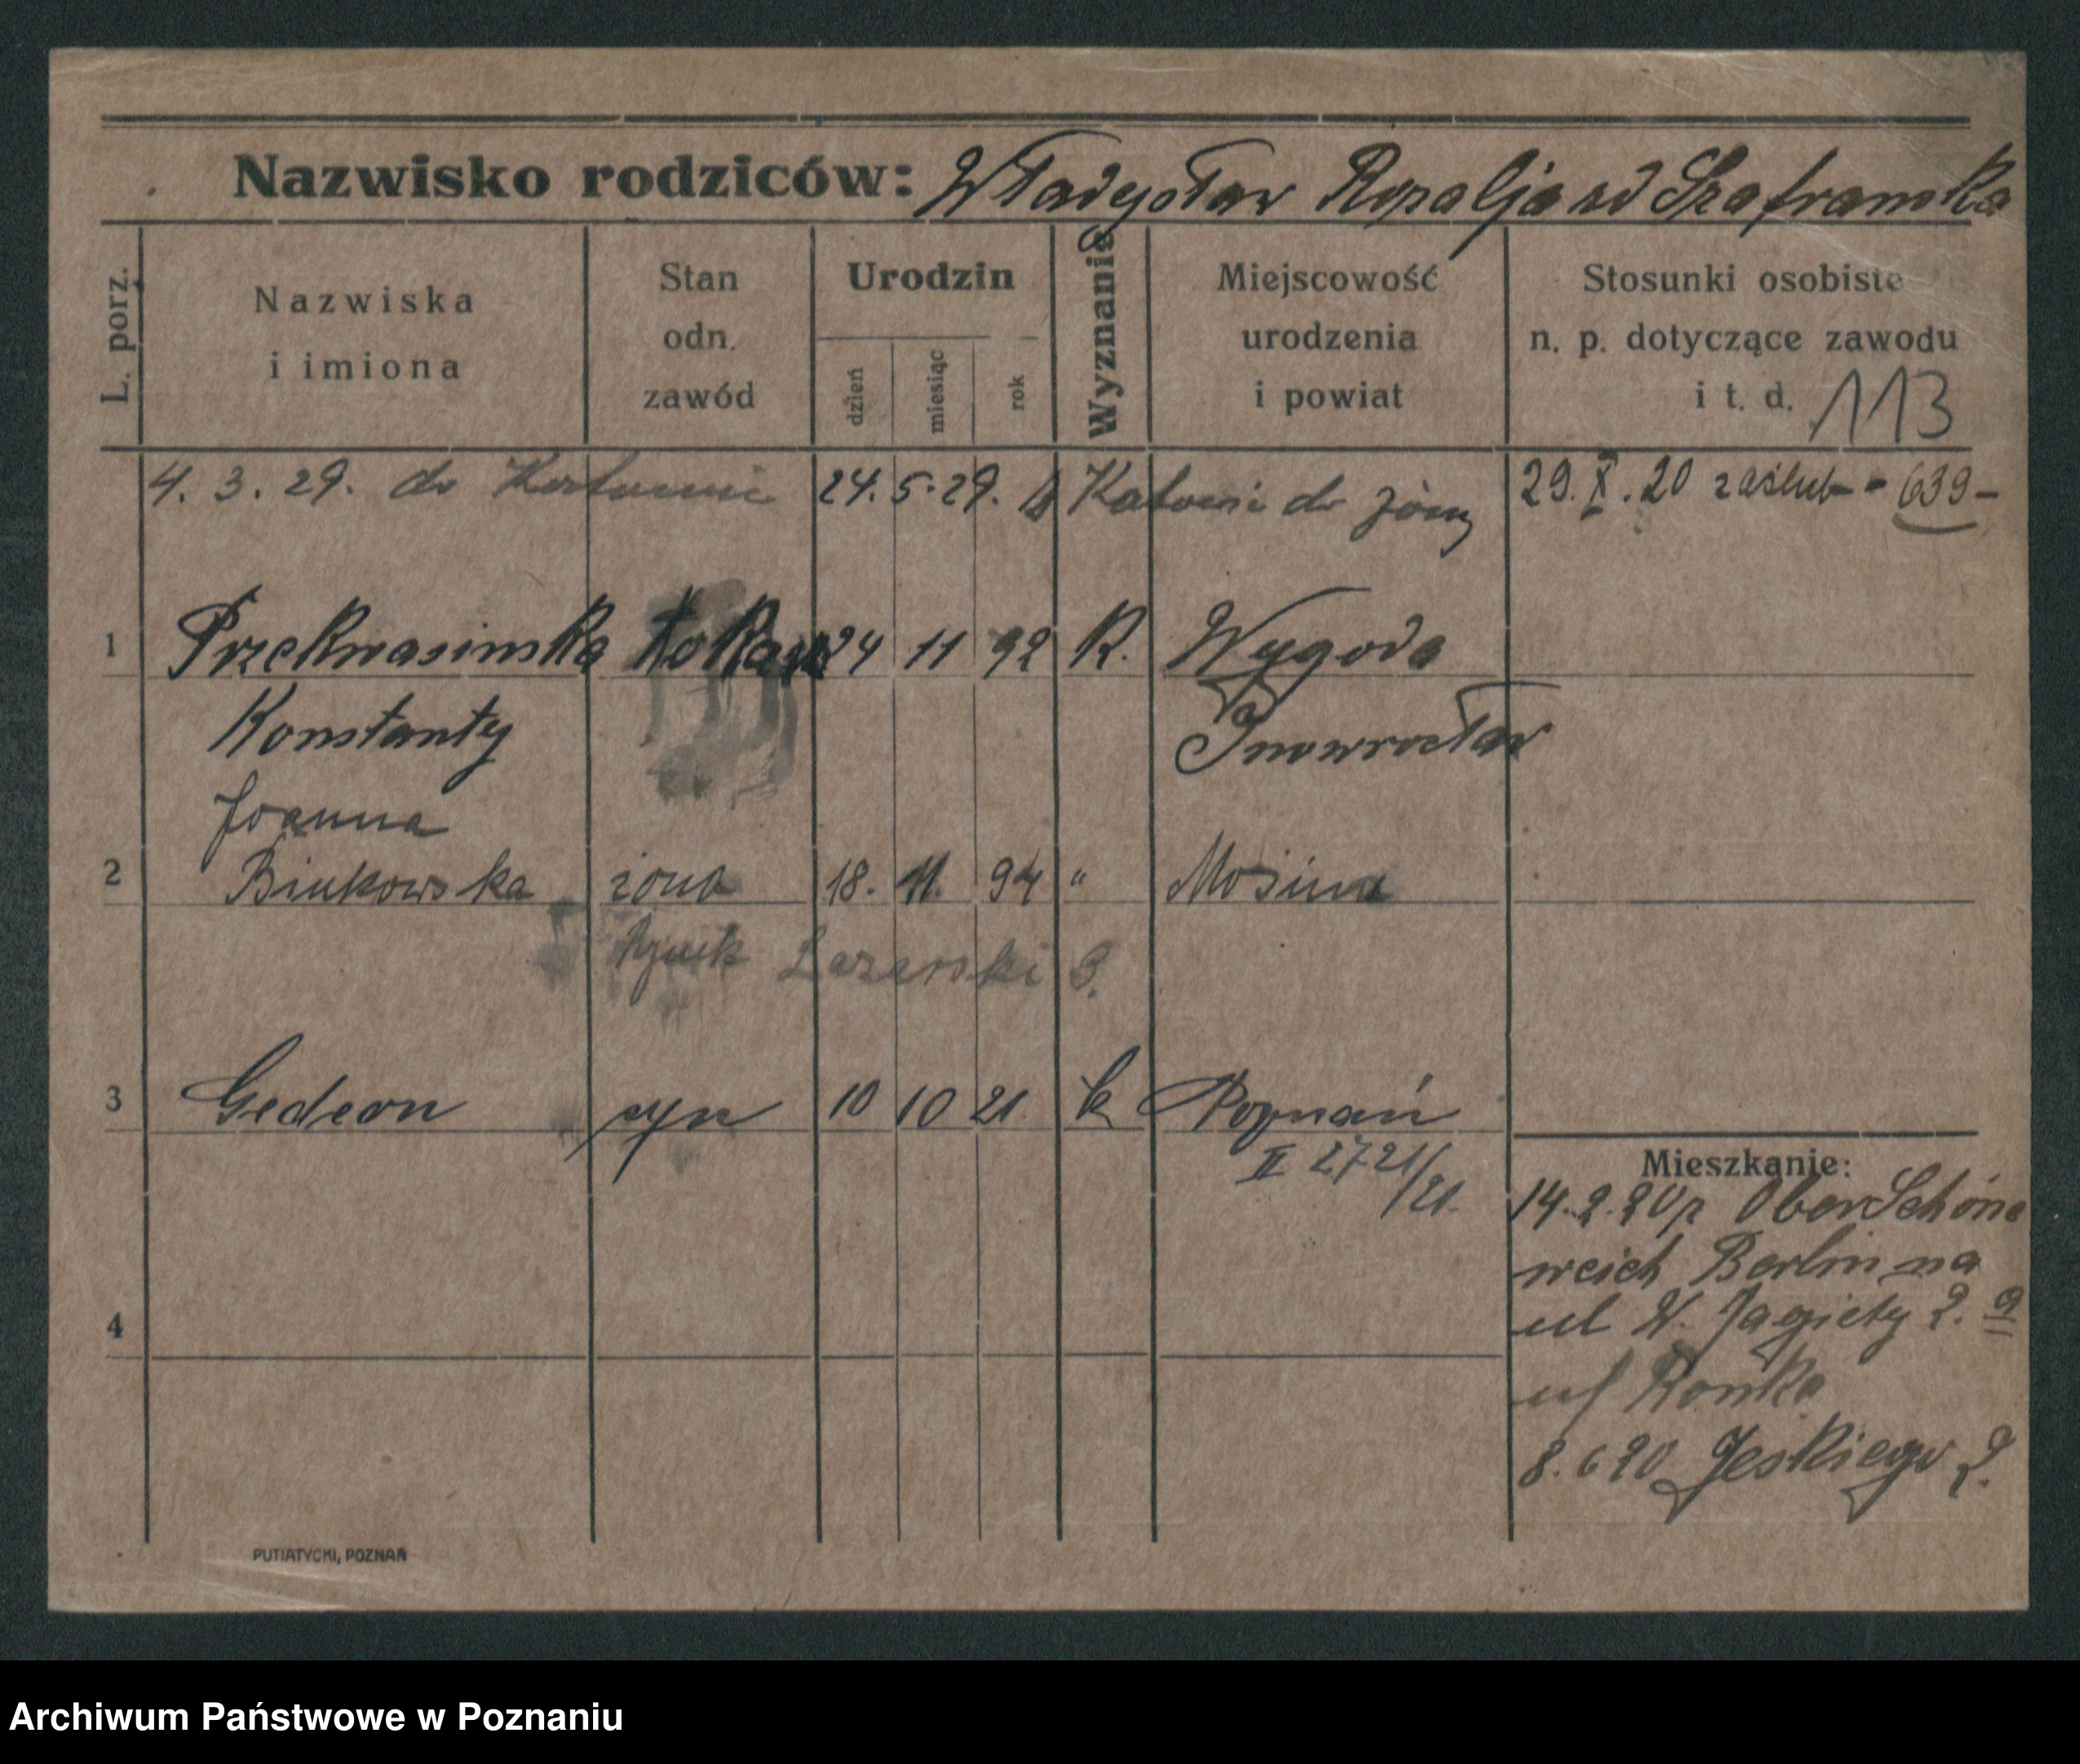 Nazwisko rodziców: Władysław Rozalja zd Szafranska
L. porz.
Nazwiska
i imiona
Stan
odn.
zawód
Urodzin
dzień
miesiąc
rok
Wyznanie
Miejscowość
urodzenia
i powiat
Stosunki osobiste
n. p. dotyczące zawodu
i t. d. 113
4. 3. 29. do Katowic 24. 5. 29. Katowic do żony 29. X. 20 zaślub - 639 -
1 Przekwasinska tokarz 24 11 92 R. Wygoda
Konstanty Inowrocław
Joanna
2 Binkowska żona 18. 11. 94 " Mosina
Rynek Lazarski 9.
3 Gedeon syn 10 10 21. k Poznań
II 2721/21.
Mieszkanie:
14. 2. 20 p OberSchöne
weich Berlin na
ul W. Jagiełły 2. a
u/ Ronka
4
8. 6 20 Jeskiego 2.
PUTIATYCKI, POZNAŃ
Archiwum Państwowe w Poznaniu